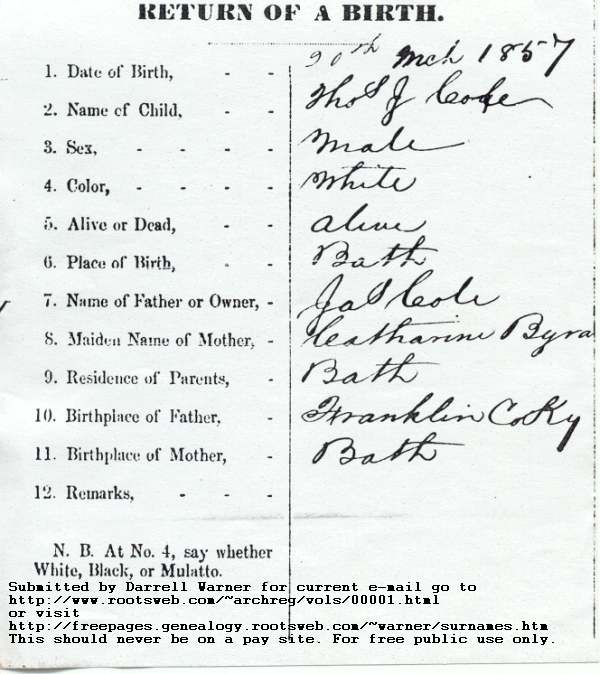 RETURN OF A BIRTH.
1. Date of Birth, - - 20th Mch 1857
2. Name of Child, - - Thos J Cole
3. Sex, - - - - Male
4. Color, - - - - White
5. Alive or Dead, - - alive
6. Place of Birth, - - Bath
7. Name of Father or Owner, - Jas Cole
8. Maiden Name of Mother, - Catharine Byra
9. Residence of Parents, - Bath
10. Birthplace of Father, - Franklin Co Ky
11. Birthplace of Mother, - Bath
12. Remarks, - - -
N. B. At No. 4, say whether
White, Black, or Mulatto.
Submitted by Darrell Warner for current e-mail go to
http://www.rootsweb.com/~archreg/vols/00001.html
or visit
http://freepages.genealogy.rootsweb.com/~warner/surnames.htm
This should never be on a pay site. For free public use only.